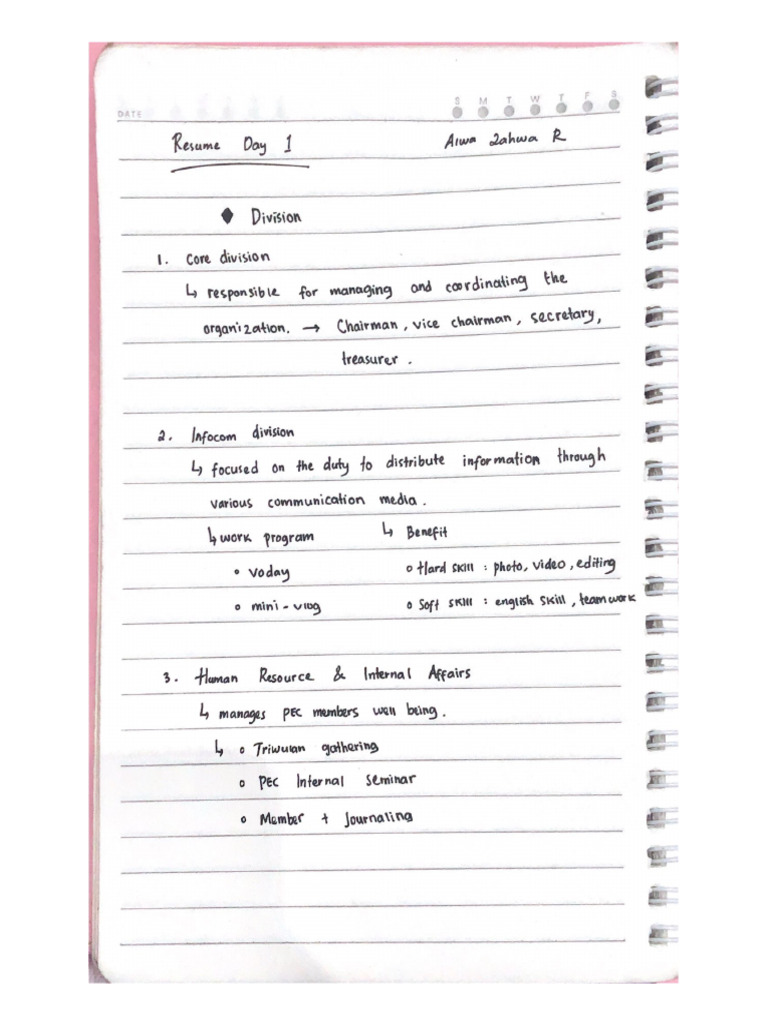 DATE
S M T W T F S
Resume Day 1 Aiwa Zahwa R
◆ Division
1. Core division
↳ responsible for managing and coordinating the
organization. → Chairman, vice chairman, secretary,
treasurer.
2. Infocom division
↳ focused on the duty to distribute information through
various communication media.
↳ work program ↳ Benefit
o Voday o Hard skill : photo, video, editing
o mini - vlog o Soft skill : english skill, teamwork
3. Human Resource & Internal Affairs
↳ manages PEC members well being.
↳ o Triwulan gathering
o PEC Internal Seminar
o Member + Journaling